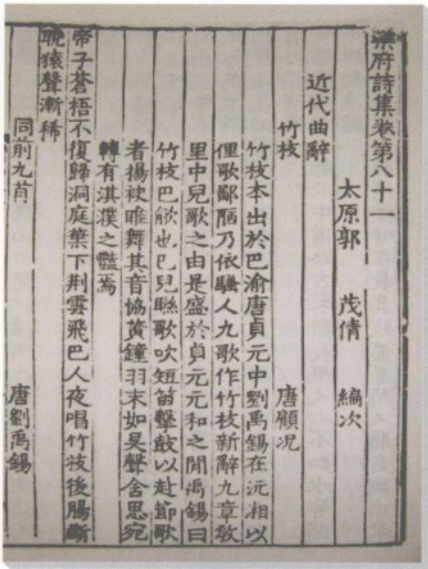 樂府詩集卷第八十一
太原郭 茂倩 編次
近代曲辭
竹枝 唐顧况
竹枝本出於巴渝唐貞元中劉禹錫在沅相以
俚歌鄙陋乃依騷人九歌作竹枝新辭九章教
里中兒歌之由是盛於貞元元和之間禹錫曰
竹枝巴歈也巴兒聮歌吹短笛擊鼓以赴節歌
者揚袂睢舞其音協黃鐘羽末如吳聲含思宛
轉有淇濮之豔焉
帝子蒼梧不復歸洞庭葉下荆雲飛巴人夜唱竹枝後腸斷
曉猿聲漸稀
同前九首 唐劉禹錫